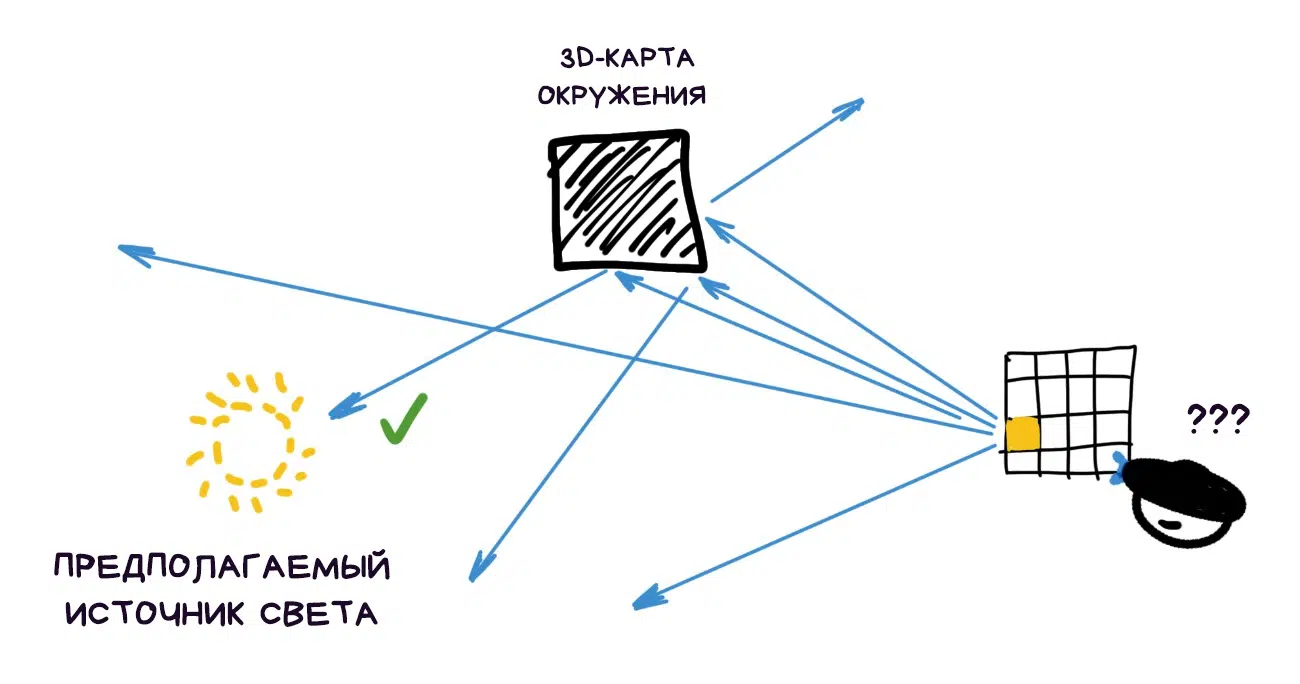 3D-КАРТА
ОКРУЖЕНИЯ
???
ПРЕДПОЛАГАЕМЫЙ
ИСТОЧНИК СВЕТА